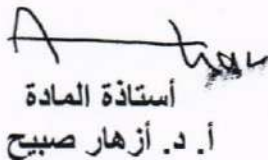 أستاذة المادة
أ. د. أزهار صبيح